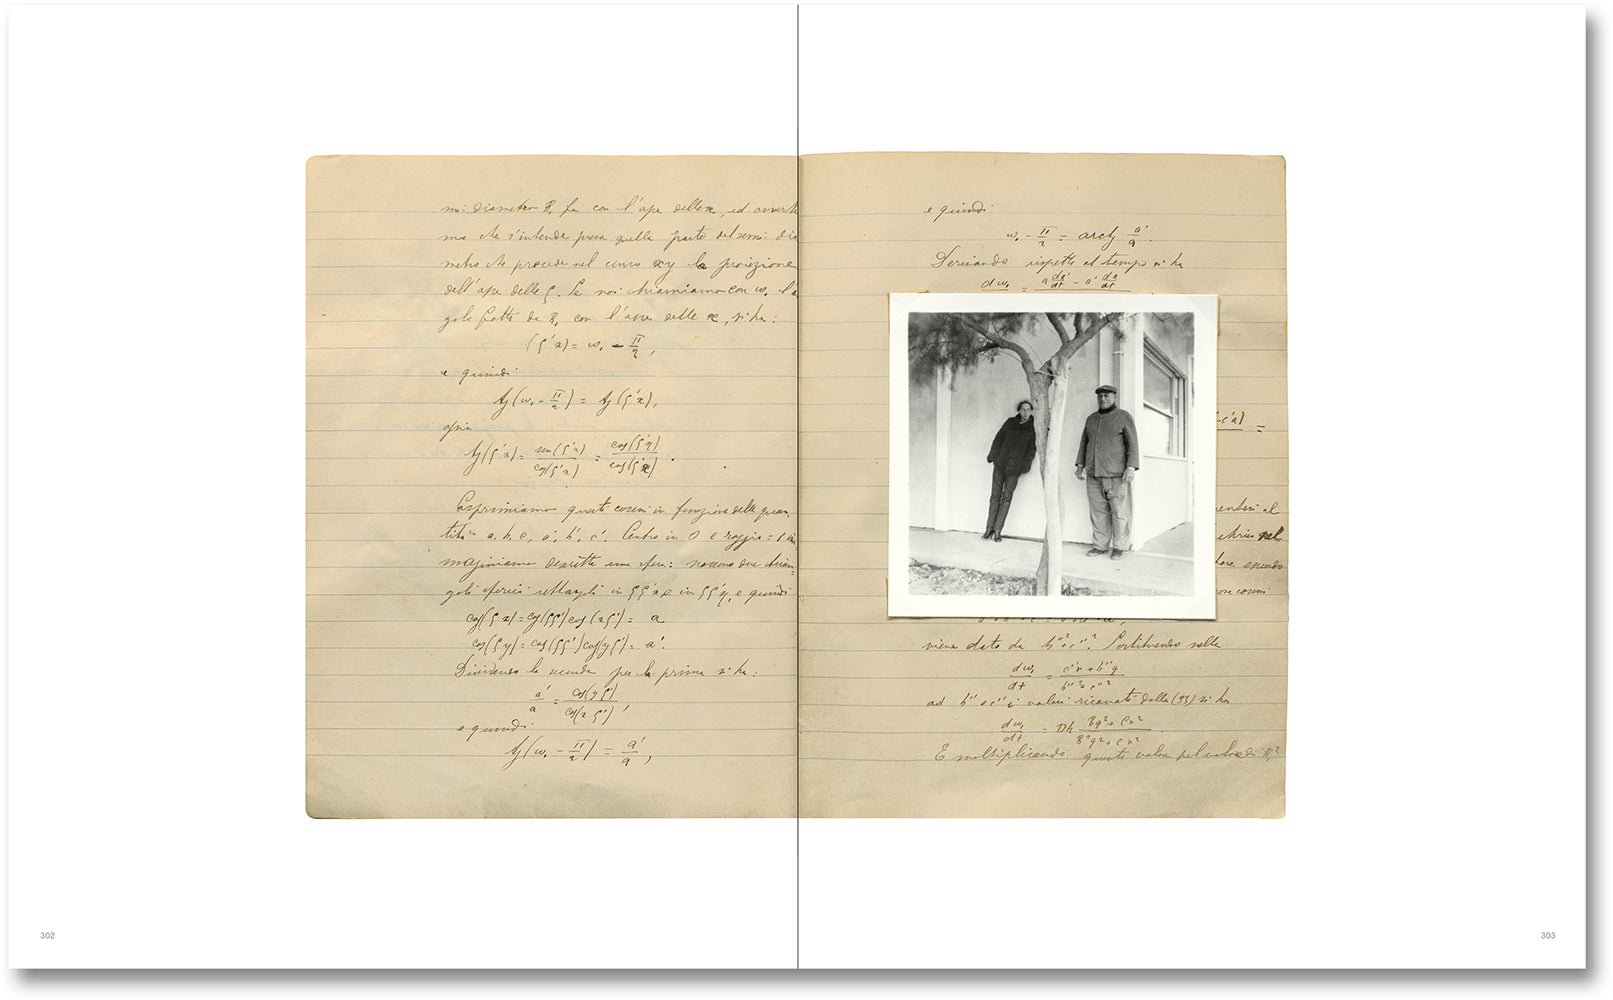 mi diametro R, fa con l'asse delle x, ed avverti
mo che s'intende presa quella parte del semi dia
metro che precede nel senso xy la proiezione
dell'asse delle ζ. Se noi chiamiamo con ω, l'a
golo fatto da R, con l'asse delle x, si ha:
(ζ'x) = ω, - π/2,
e quindi
tg(ω, - π/2) = tg(ζ'x),
ossia
tg(ζ'x) = sen(ζ'x)/cos(ζ'x) = cos(ζ'y)/cos(ζ'x).
Esprimiamo questi coseni in funzione delle quan
tità a, b, c, a', b', c'. Centro in O e raggio = 1 im
maginiamo descritta una sfera: nascono due trian-
goli sferici rettangoli in ζζ'x e in ζζ'y, e quindi
cos(ζx) = cos(ζζ')cos(xζ') = a
cos(ζy) = cos(ζζ')cos(yζ') = a'.
Dividendo la seconda per la prima si ha:
a'/a = cos(yζ')/cos(xζ'),
e quindi
tg(ω, - π/2) = a'/a,
302
e quindi
ω, - π/2 = arctg a'/a.
Derivando rispetto al tempo si ha
dω, = a da'/dt - a' da/dt
=
al
nel
essendo
coseni
viene dato da b''² + c''². Sostituendo nella
dω,/dt = c''r + b''q / b''² + c''²
ad b'' e c'' i valori ricavati dalla si ha
dω,/dt = Dh Bq² + Cr² / B²q² + C²r².
E moltiplicando questo valore pel valore di R,²
303